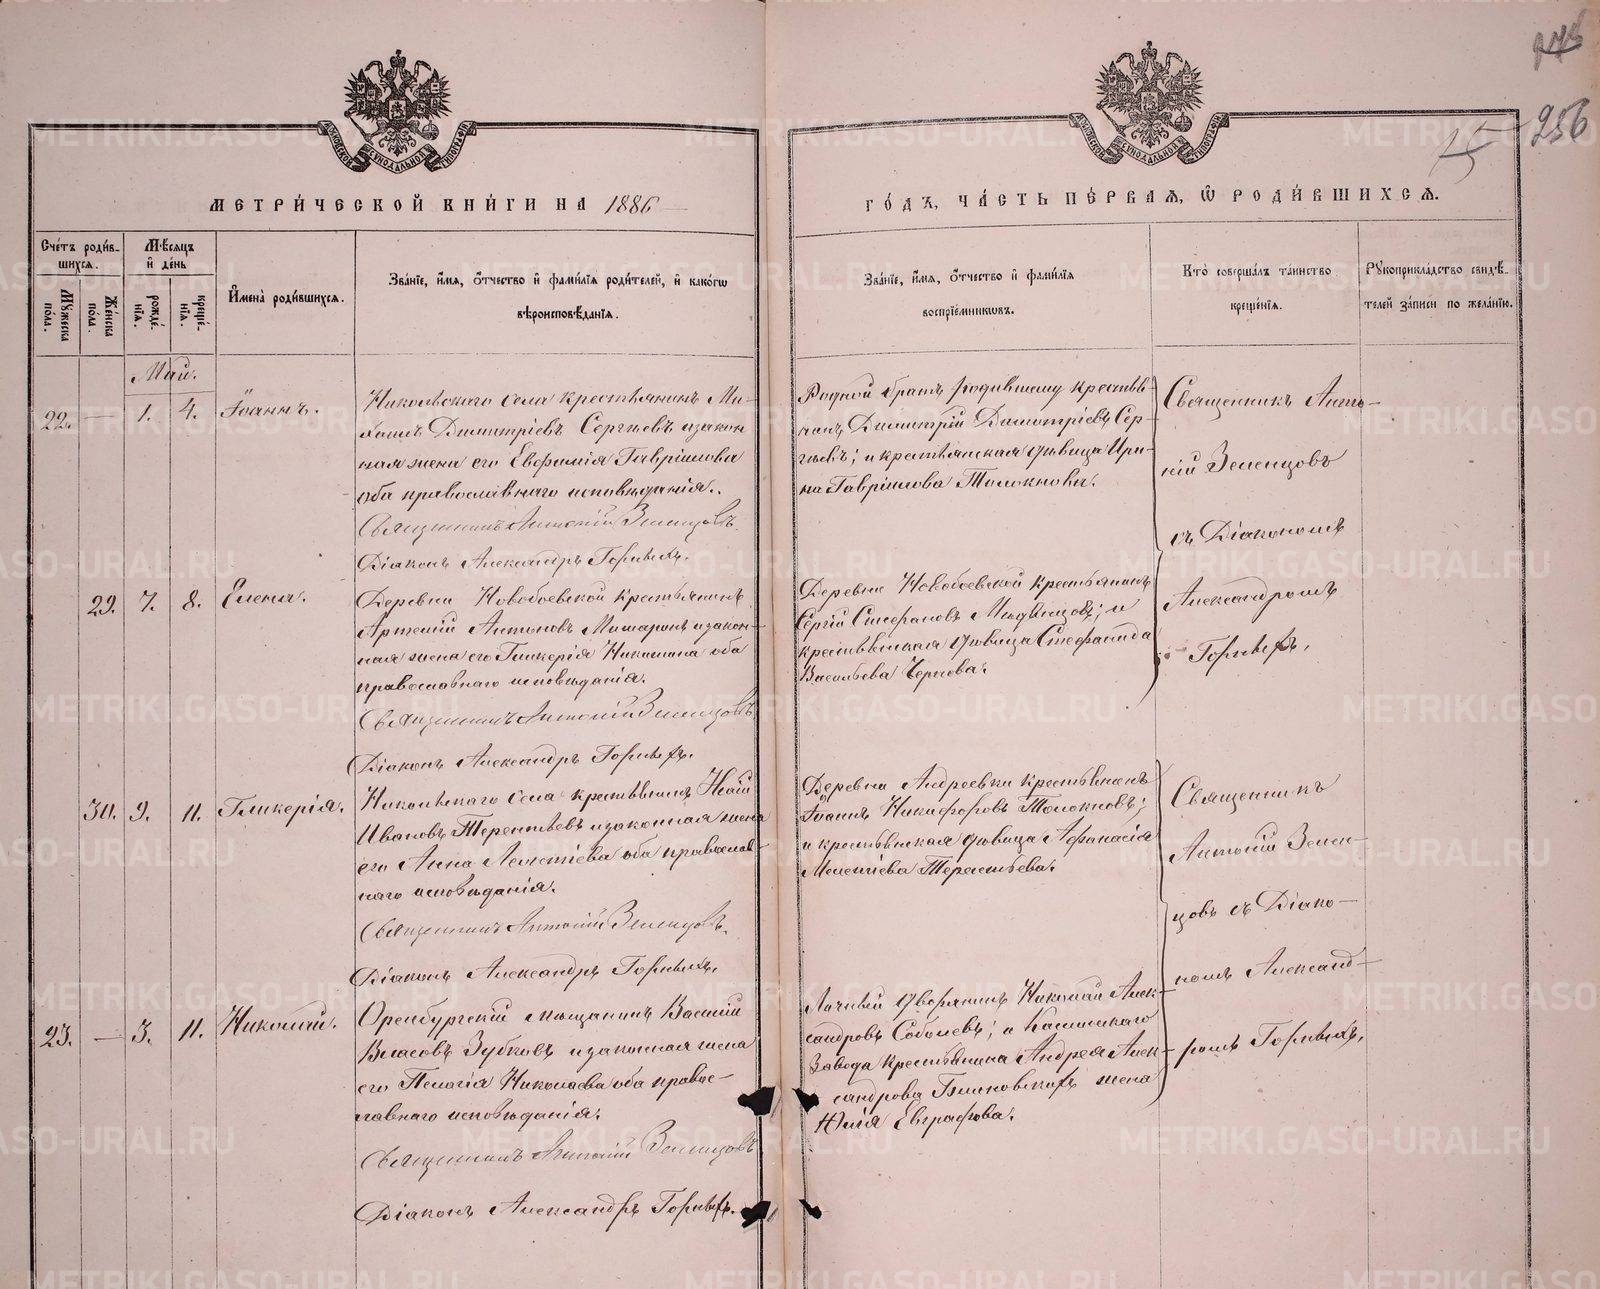 256
15
МЕТРИ́ЧЕСКОЙ КНИ́ГИ НА 1886
ГО́ДЪ, ЧА́СТЬ ПЕ́РВАЯ, Ѡ҆ РОДИ́ВШИХСЯ.
Сче́тъ роди́в-
шихся.
Му́жеска по́ла.
Же́нска по́ла.
Мѣ́сяцъ
и҆ де́нь
рожде́-
нїя.
креще́-
нїя.
И҆мена̀ роди́вшихся.
Зва́нїе, и҆́мя, ѻ҆́тчество и҆ фами́лїя роди́телей, и҆ како́гѡ
вѣроисповѣ́данїя.
Зва́нїе, и҆́мя, ѻ҆́тчество и҆ фами́лїя
воспрїе́мникѡвъ.
Кто̀ соверша́лъ та́инство
креще́нїя.
Рꙋкоприкла́дство свидѣ́-
телей за́писи по жела́нїю.
Май.
22. — 1. 4. Іоаннъ.
Никольскаго села крестьянинъ Ми-
хаилъ Димитріевъ Сергѣевъ и закон
ная жена его Евфимія Гавріилова
оба православнаго исповѣданія.
Священникъ Антоній Зеленцовъ.
Діаконъ Александръ Горныхъ.
Родной братъ родившему крестья-
нинъ Димитрій Димитріевъ Сер-
гѣевъ; и крестьянская дѣвица Ири-
на Гавріилова Толокнова.
Священникъ Анто-
ній Зеленцовъ
съ Діакономъ
Александромъ
Горныхъ.
29. 7. 8. Елена.
Деревни Новобоевской крестьянинъ
Артемій Антоновъ и закон-
ная жена его Гликерія Никитина оба
православнаго исповѣданія.
Священникъ Антоній Зеленцовъ
Діаконъ Александръ Горныхъ.
Деревни Новобоевской крестьянинъ
Сергій Стефановъ и
крестьянская дѣвица Стефанида
Васильева Чернова.
30. 9. 11. Гликерія.
Никольскаго села крестьянинъ
Ивановъ Терентьевъ и законная жена
его Анна оба православ-
наго исповѣданія.
Священникъ Антоній Зеленцовъ.
Діаконъ Александръ Горныхъ.
Деревни Андреевки крестьянинъ
Іоаннъ Никифоровъ Толокновъ;
и крестьянская дѣвица Афанасія
Мелетіева Терентьева.
Священникъ
Антоній Зелен-
цовъ съ Діако-
номъ Александ-
ромъ Горныхъ.
23. — 3. 11. Николай.
Оренбургскій мѣщанинъ Василій
Власовъ Зубковъ и законная жена
его Пелагія Николаева оба правос-
лавнаго исповѣданія.
Священникъ Антоній Зеленцовъ
Діаконъ Александръ Горныхъ.
Личный дворянинъ Николай Алек-
сандровъ Соболевъ; и Каслинскаго
Завода крестьянина Андрея Алек-
сандрова жена
Юлія Евграфова.
METRIKI.GASO-URAL.RU